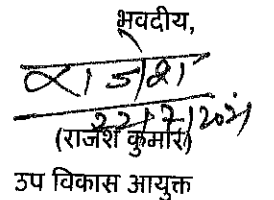 भवदीय,
राजेश
22/7/2021
(राजेश कुमार)
उप विकास आयुक्त